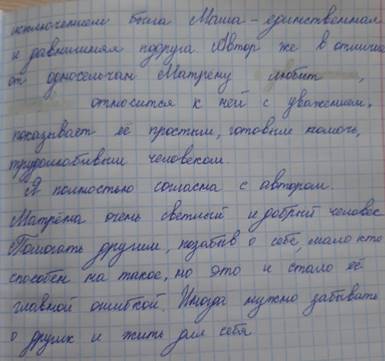 исключением была Маша - единственная
и давнишняя подруга. Автор же в отличие
от односельчан Матрену любит ,
относится к ней с уважением,
показывает её простым, готовым помочь,
трудолюбивым человеком.
Я полностью согласна с автором.
Матрёна очень светлый и добрый человек
Помогать другим, позабыв о себе, мало кто
способен на такое, но это и стало её
главной ошибкой. Иногда нужно забывать
о других и жить для себя